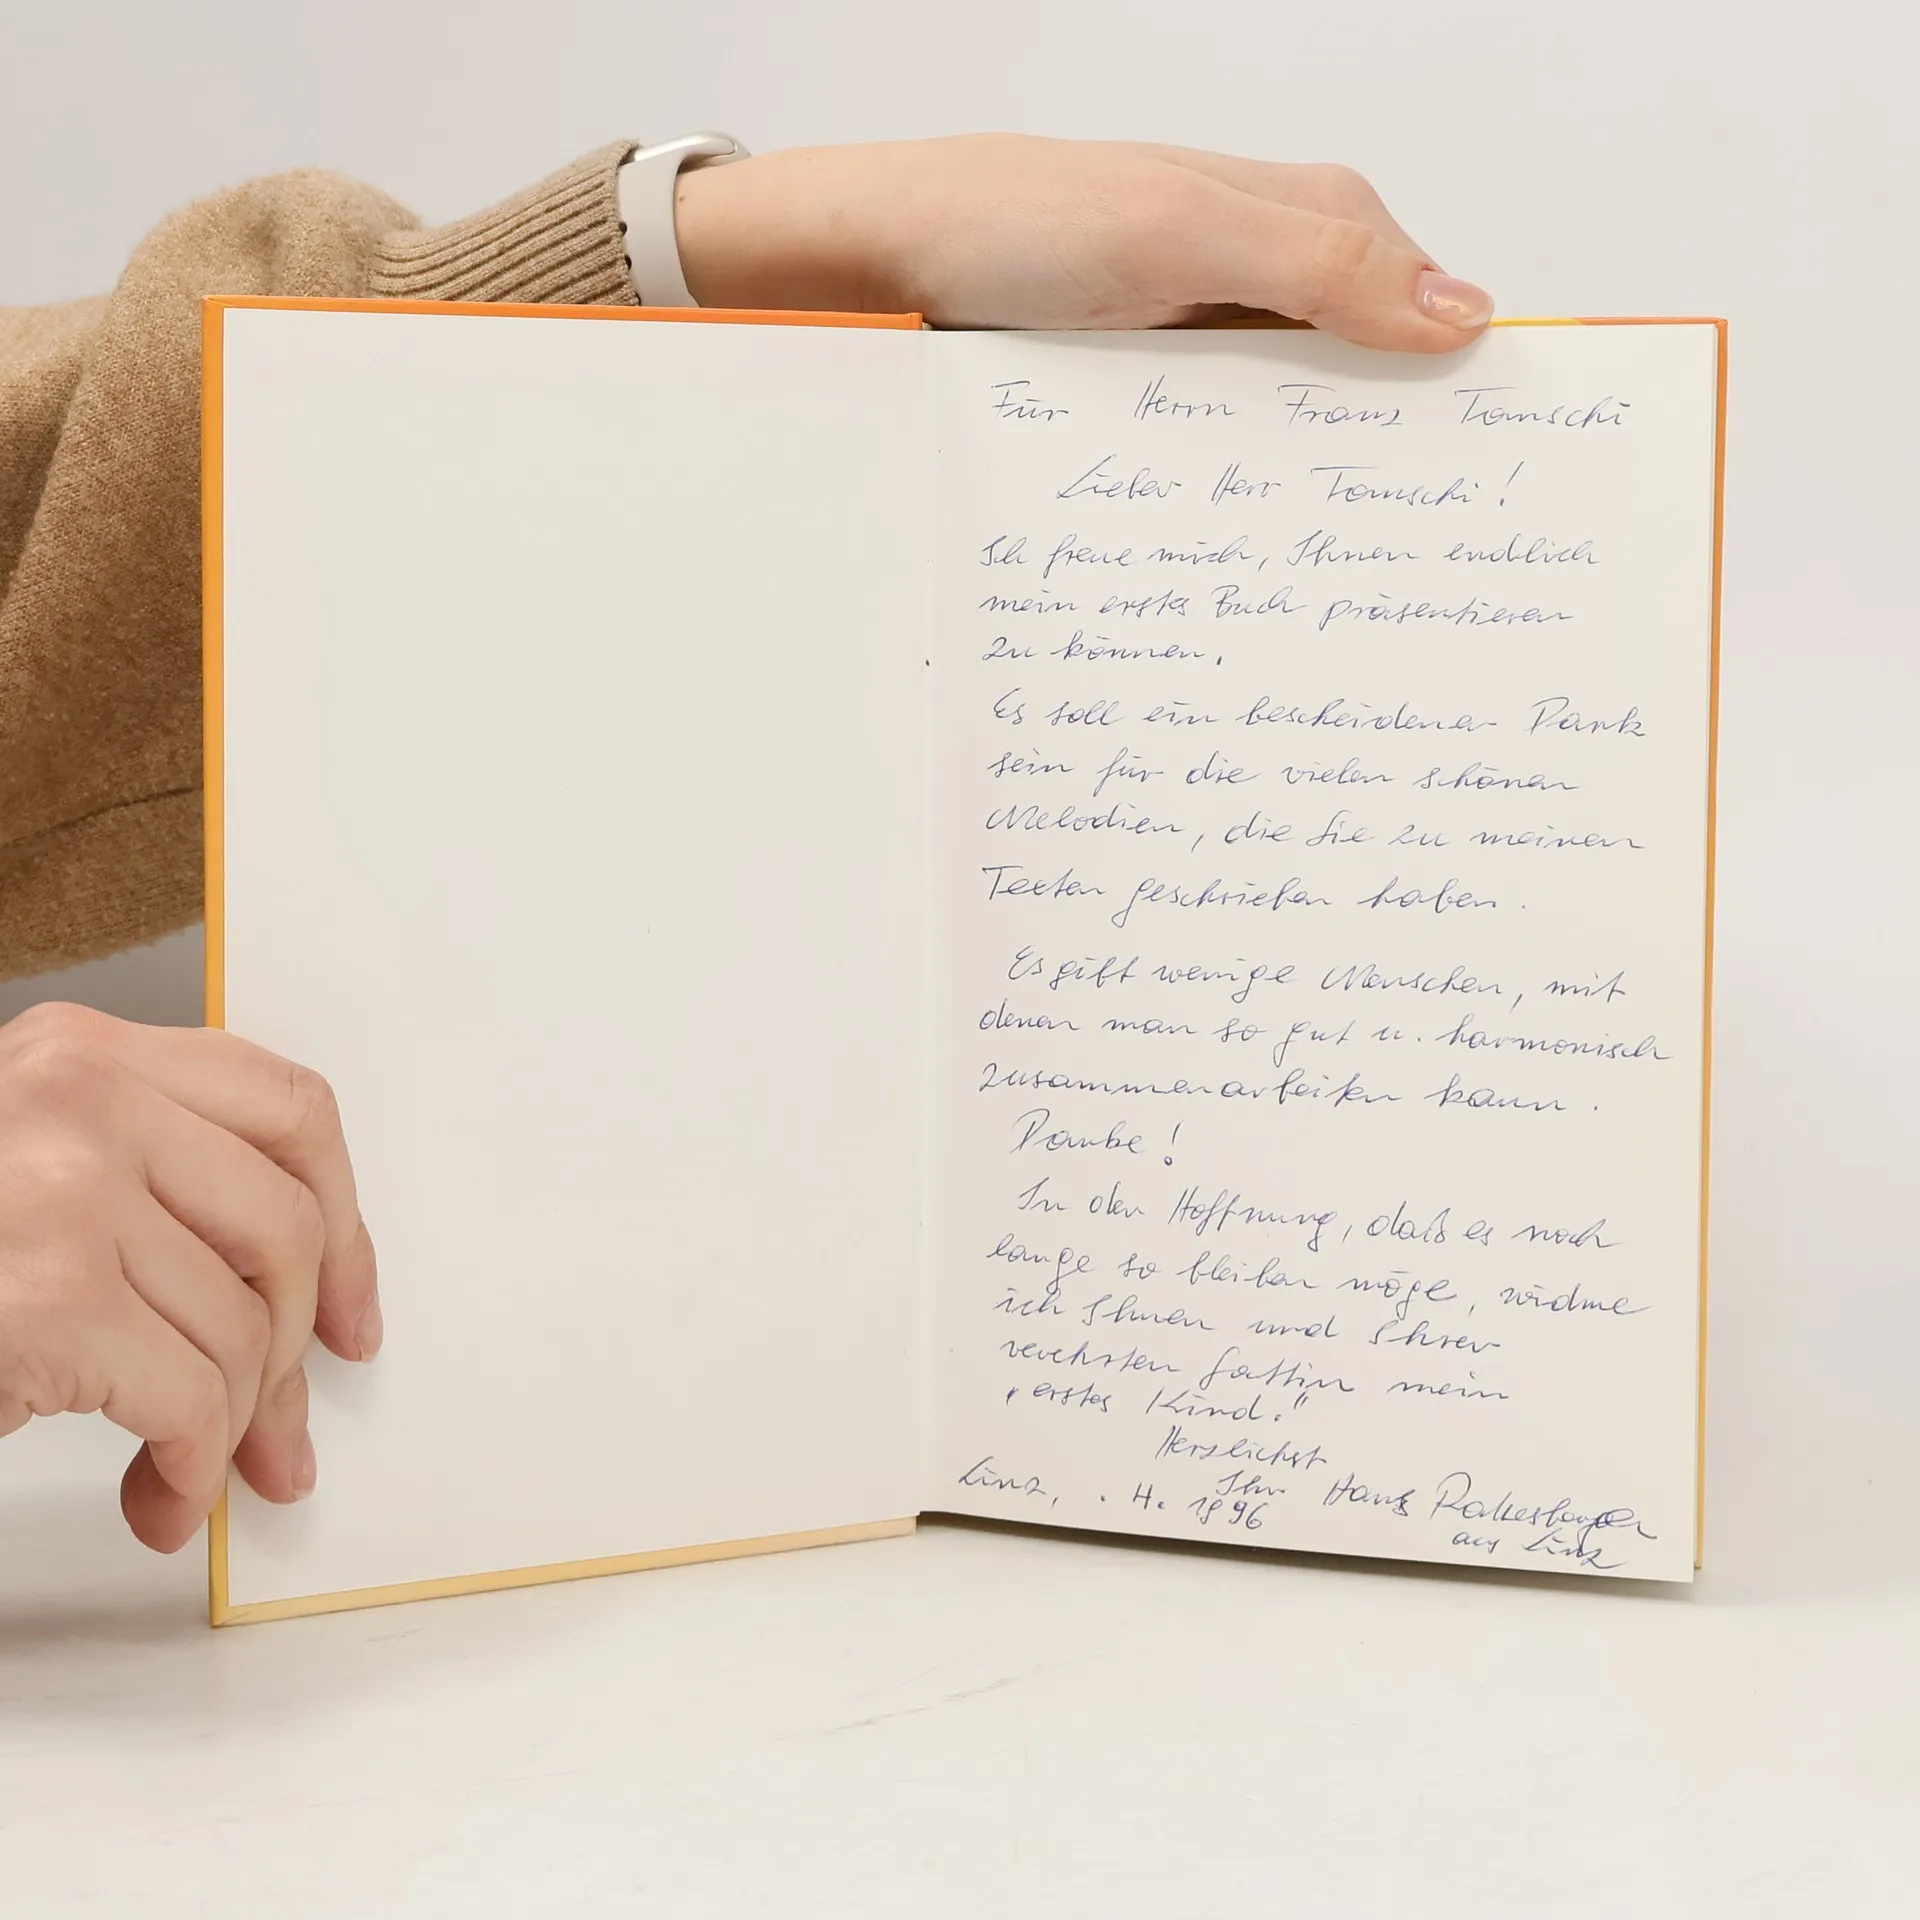 Für Herrn Franz Tomschi
Lieber Herr Tomschi!
Ich freue mich, Ihnen endlich
mein erstes Buch präsentieren
zu können.
Es soll ein bescheidener Dank
sein für die vielen schönen
Melodien, die Sie zu meinen
Texten geschrieben haben.
Es gibt wenige Menschen, mit
denen man so gut u. harmonisch
zusammenarbeiten kann.
Danke!
In der Hoffnung, daß es noch
lange so bleiben möge, widme
ich Ihnen und Ihrer
verehrten Gattin mein
„erstes Kind."
Herzlichst
Ihr Hans
Linz, 1996
aus Linz